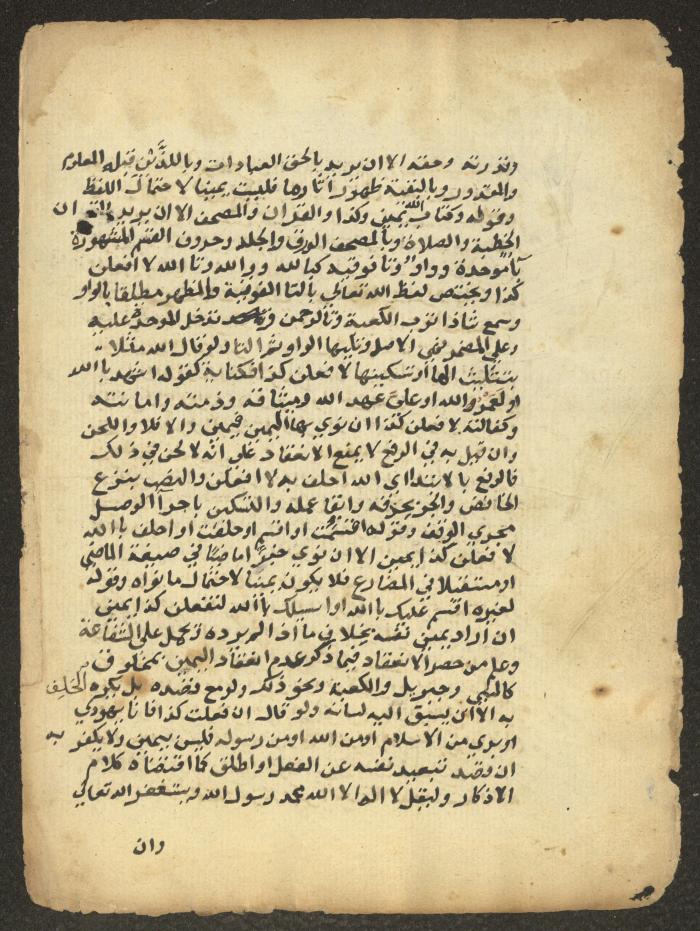 وقدرته وحقه الا ان يريد بالحق العبادات وباللذين قبله المعلوم
والمقدور وبالبقية ظهور آثارها فليست يمينا لاحتمال اللفظ
وقوله وكتاب الله يمين وكذا والقران والمصحف الا ان يريد بالقران
الخطبة والصلاة وبالمصحف الورق والجلد وحروف القسم المشهورة
با موحدة وواو وتا فوقية كبالله ووالله وتالله لافعلن
كذا ويختص لفظ الله تعالى بالتا الفوقية والمظهر مطلقا بالواو
وسمع شاذا ترب الكعبة وتالرحمن وتدخل الموحدة عليه
وعلى المضمر فهي الاصل وتليها الواو ثم التا ولو قال الله مثلا
بتثليث الها او تسكينها لافعلن كذا فكناية كقوله اشهد بالله
او لعمر الله او على عهد الله وميثاقه وذمته وامانته
وكفالته لافعلن كذا ان نوى بها اليمين فيمين والا فلا واللحن
وان قيل به في الرفع لا يمنع الانعقاد على انه لا لحن في ذلك
فالرفع بالابتدا اي الله احلف به لافعلن والنصب بنزع
الخافض والجر بحذفه وابقا عمله والتسكين باجرا الوصل
مجرى الوقف وقوله اقسمت او اقسم او حلفت او احلف بالله
لافعلن كذا يمين الا ان نوى خبرا ماضيا في صيغة الماضي
او مستقبلا في المضارع فلا يكون يمينا لاحتمال ما نواه وقوله
لغيره اقسم عليك بالله او اسيلك بالله لتفعلن كذا يمين
ان اراد يمين نفسه بخلاف ما اذا لم يرده ويحمل على الشفاعة
وعلم من حصر الانعقاد فيما ذكر عدم انعقاد اليمين بمخلوق
كالنبي وجبريل والكعبة ونحو ذلك ولو مع قصده بل يكره الحلف
به الا ان يسبق اليه لسانه ولو قال ان فعلت كذا فانا يهودي
او بري من الاسلام او من الله او من رسوله فليس بيمين ولا يكفر به
ان قصد تبعيد نفسه عن الفعل او اطلق كما اقتضاه كلام
الاذكار وليقل لا اله الا الله محمد رسول الله ويستغفر الله تعالى
وان